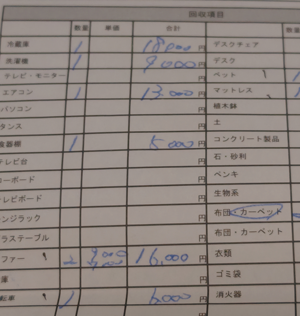 回収項目
数量 単価 合計
冷蔵庫 1 18,000円 デスクチェア
洗濯機 1 9,000円 デスク
テレビ・モニター 円 ベット
エアコン 1 13,000円 マットレス
パソコン 円 植木鉢
タンス 円 土
食器棚 1 5,000円 コンクリート製品
テレビ台 円 石・砂利
ーボード 円 ペンキ
レビボード 円 生物系
ンジラック 円 布団・カーペット
ラステーブル 円 布団・カーペット
ファー 2 16,000円 衣類
庫 円 ゴミ袋
転車 1 6,000円 消火器